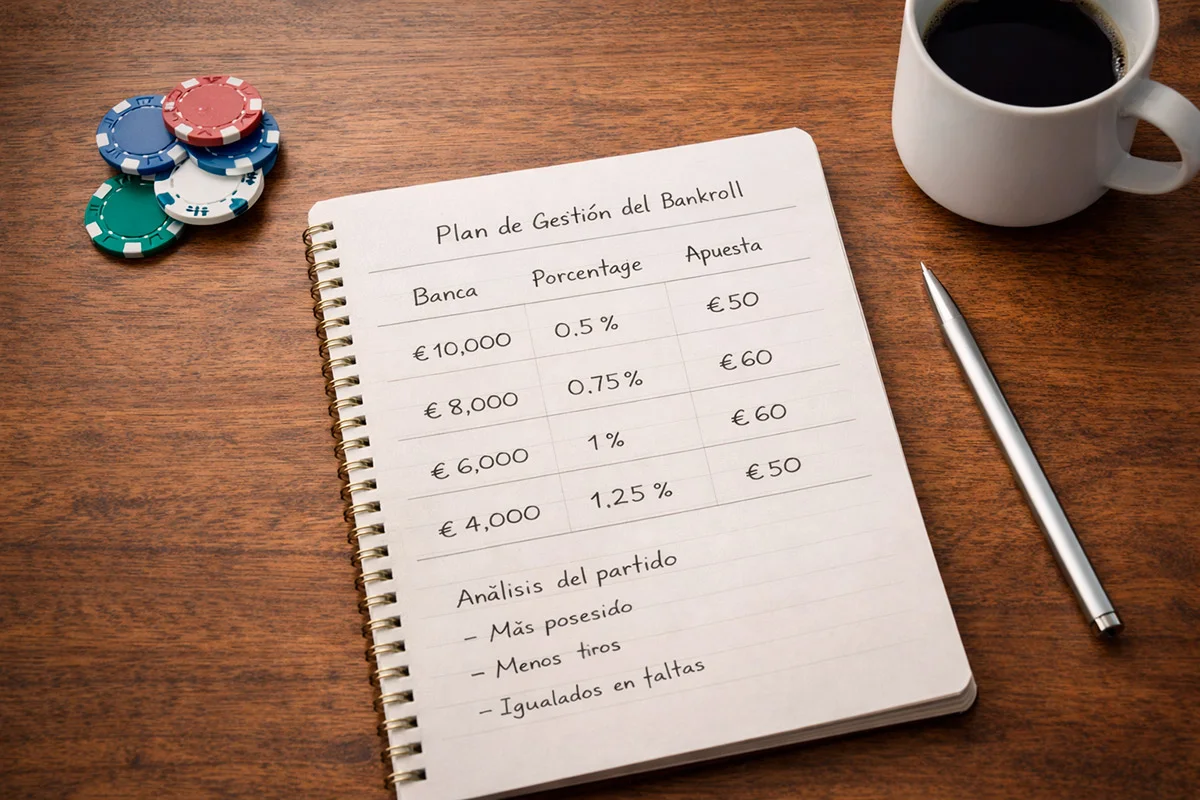 Plan de Gestión del Bankroll
Banca Porcentage Apuesta
€10,000 0.5 % €50
€ 8,000 0.75% €60
€ 6,000 1 % €60
€ 4,000 1,25 % €50
Anălisis del partido
– Măs posesido
– Menos tiros
– Igualados en taltas